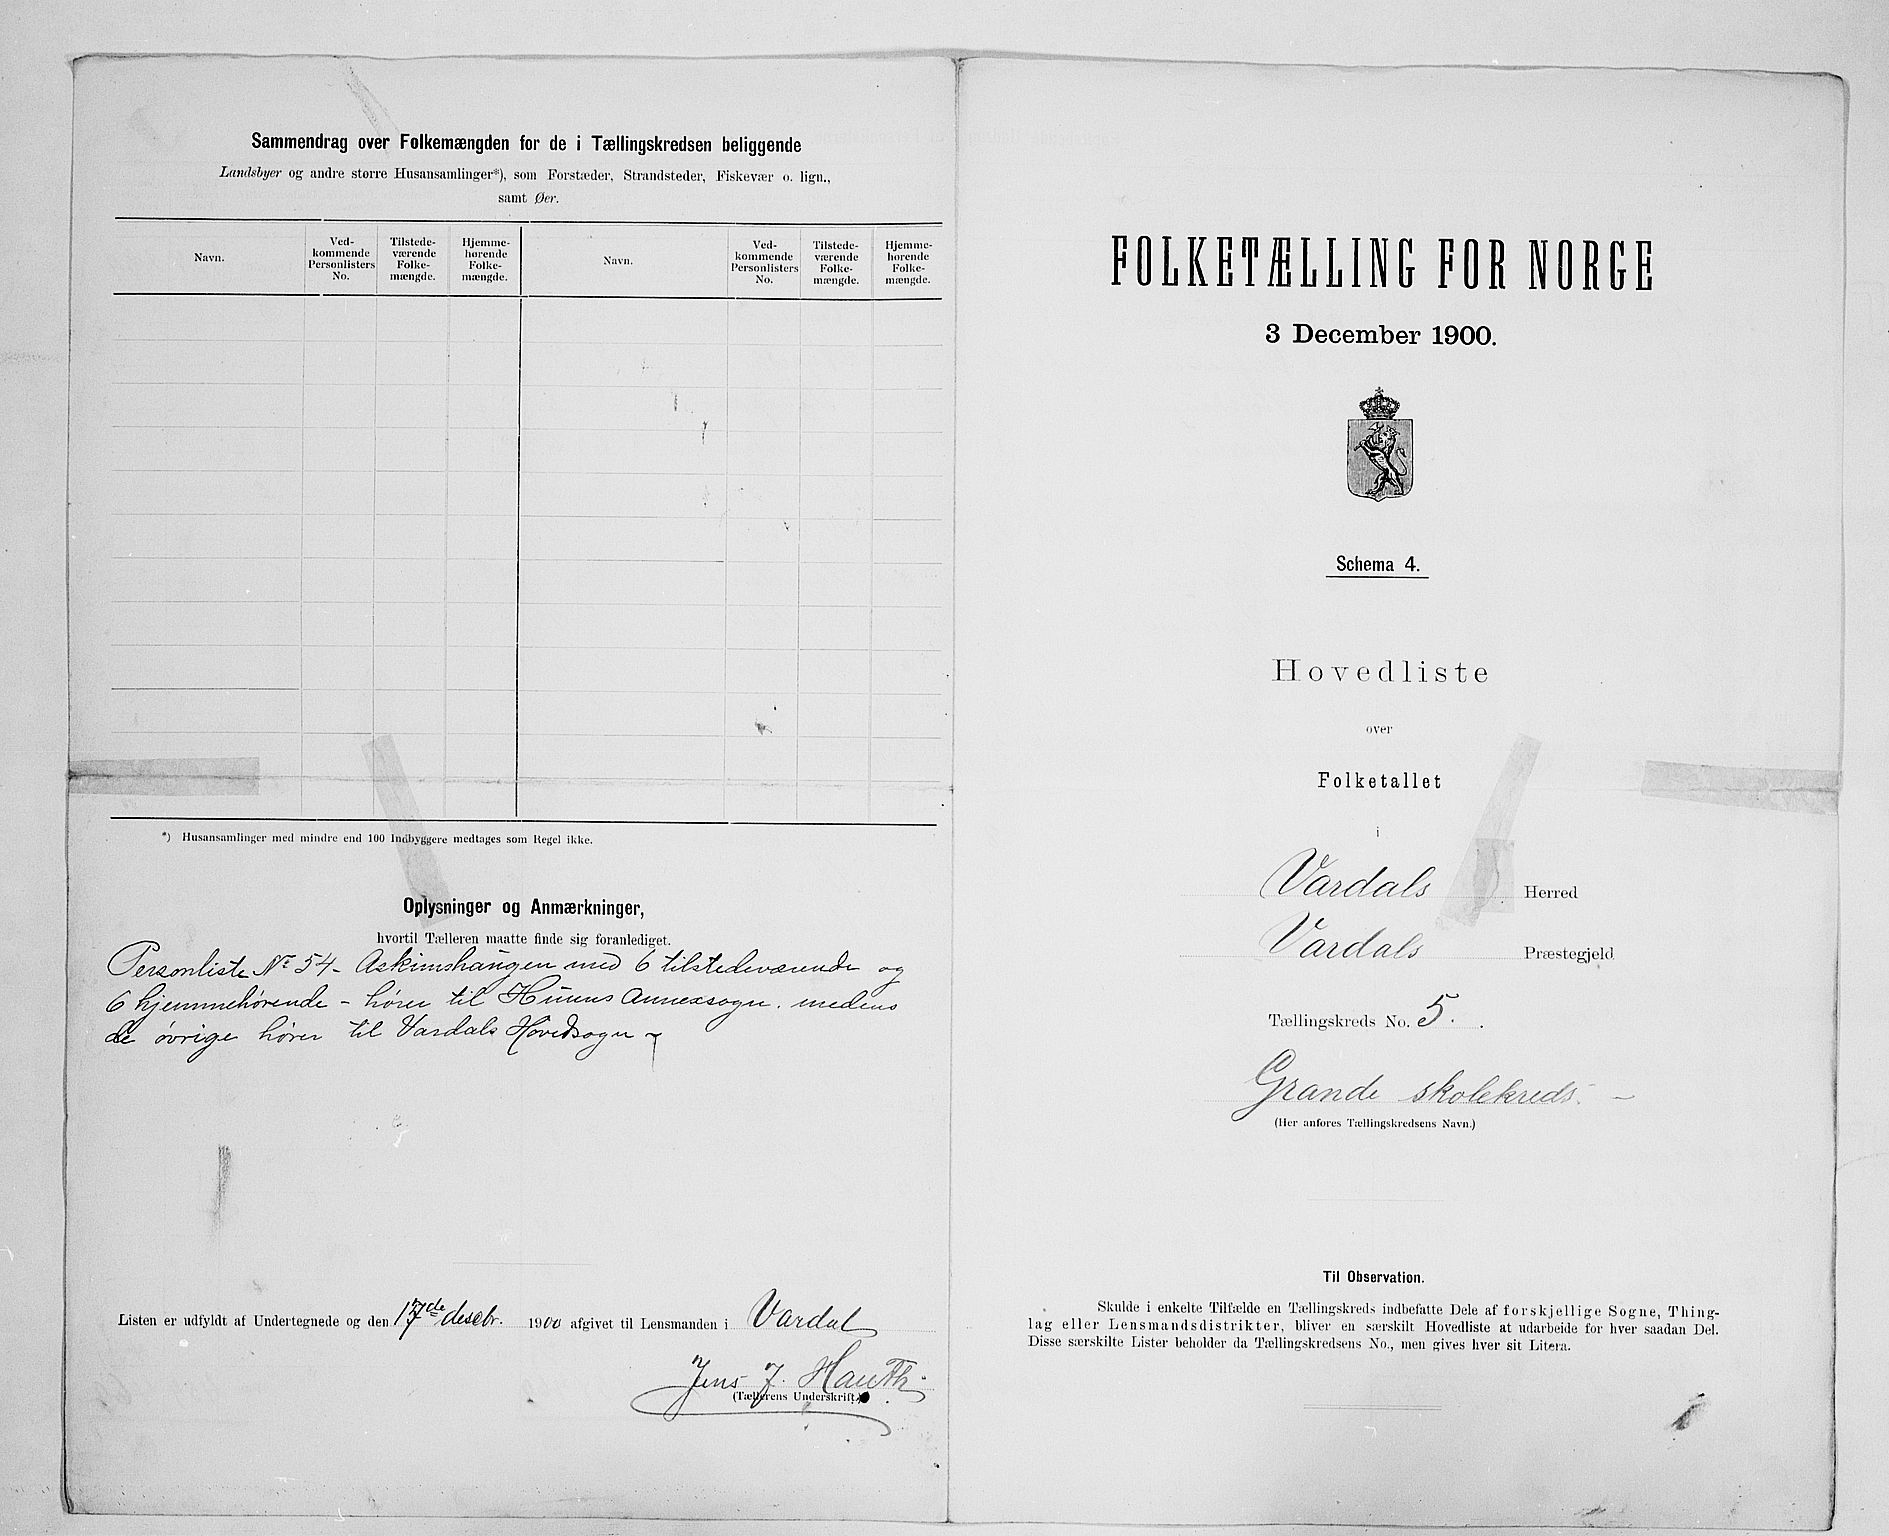 Sammendrag over Folkemængden for de i Tællingskredsen beliggende
Landsbyer og andre større Husansamlinger*), som Forstæder, Strandsteder, Fiskevær o. lign.,
samt Øer.
Navn.
Ved-
kommende
Personlisters
No.
Tilstede-
værende
Folke-
mængde.
Hjemme-
hørende
Folke-
mængde.
Navn.
Ved-
kommende
Personlisters
No.
Tilstede-
værende
Folke-
mængde.
Hjemme-
hørende
Folke-
mængde.
*) Husansamlinger med mindre end 100 Indbyggere medtages som Regel ikke.
Oplysninger og Anmærkninger,
hvortil Tælleren maatte finde sig foranlediget.
Personliste No 54 - Askimshaugen med 6 tilstedeværende og
6 hjemmehørende - hører til Hunns Annexsogn. medens
de øvrige hører til Vardals Hovedsogn
Listen er udfyldt af Undertegnede og den 17de desebr. 1900 afgivet til Lensmanden i Vardal
Jens J. Hauth
(Tællerens Underskrift.)
FOLKETÆLLING FOR NORGE
3 December 1900.
Schema 4.
Hovedliste
over
Folketallet
i
Vardals Herred
Vardals Præstegjeld
Tællingskreds No. 5.
Grande skolekreds. -
(Her anføres Tællingskredsens Navn.)
Til Observation.
Skulde i enkelte Tilfælde en Tællingskreds indbefatte Dele af forskjellige Sogne, Thing-
lag eller Lensmandsdistrikter, bliver en særskilt Hovedliste at udarbeide for hver saadan Del.
Disse særskilte Lister beholder da Tællingskredsens No., men gives hver sit Litera.